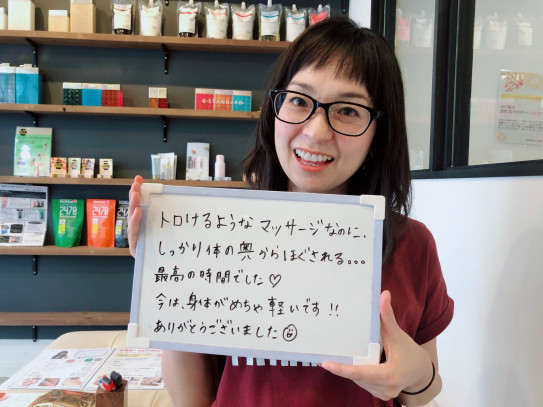 トロけるような マッサージなのに、
しっかり体の奥からほぐされる...
最高の時間でした♡
今は、身体がめちゃ軽いです!!
ありがとうございました☺
2478
2478